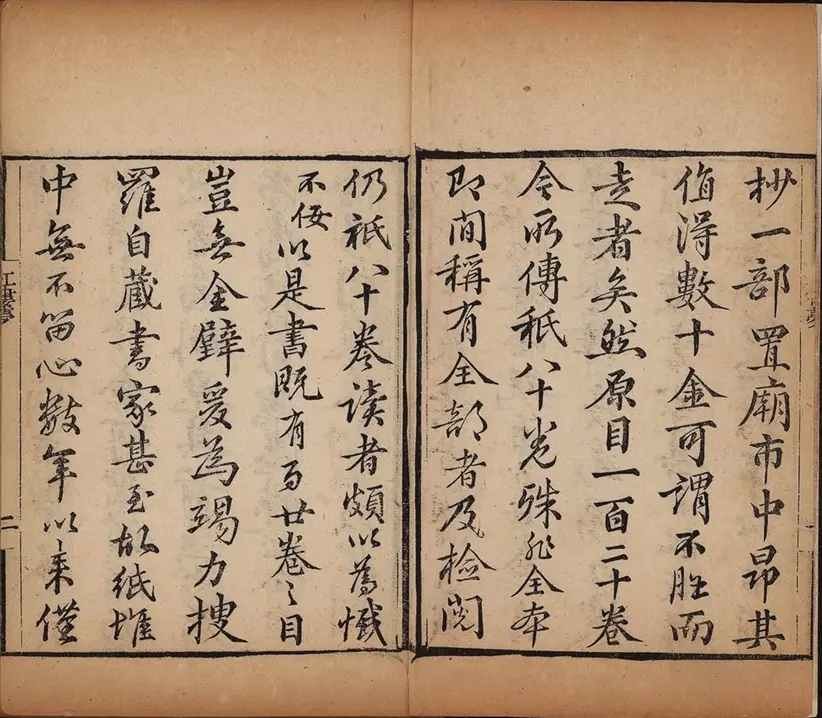 抄一部置廟市中昂其
值得數十金可謂不脛而
走者矣然原目一百二十卷
今所傳秖八十卷殊非全本
即間稱有全部者及檢閱
仍祇八十卷讀者頗以為憾
不佞以是書既有百廿卷之目
豈無全璧爰為竭力搜
羅自藏書家甚至故紙堆
中無不留心數年以來僅
二